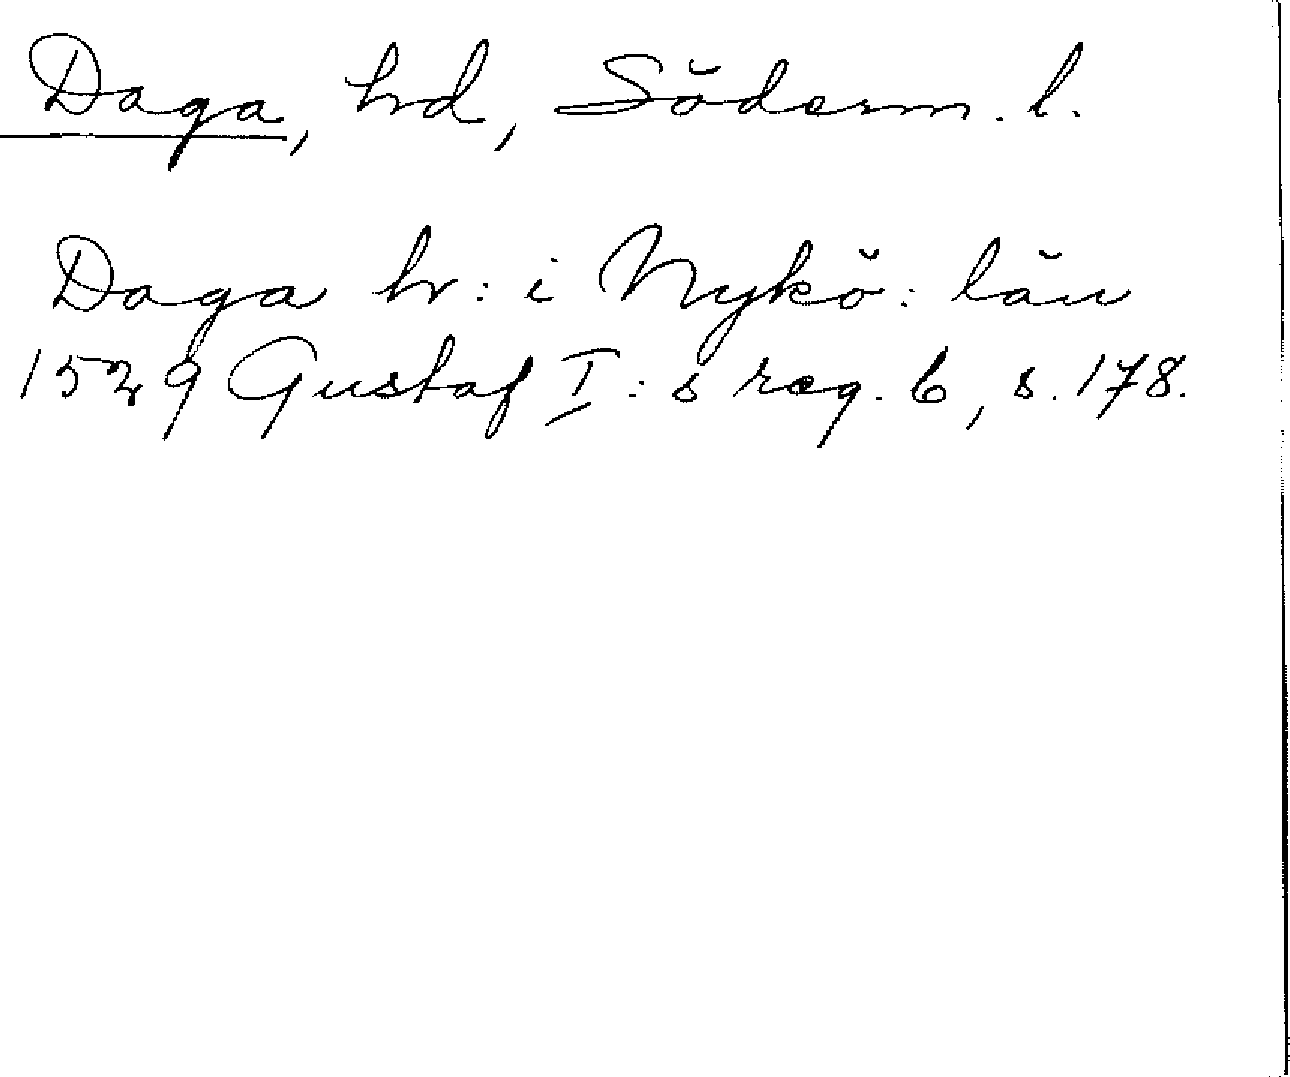 Daga, hd, Söderm. l.
Daga hr: i Nykö: län
1529 Gustaf I: s reg. 6, s. 178.